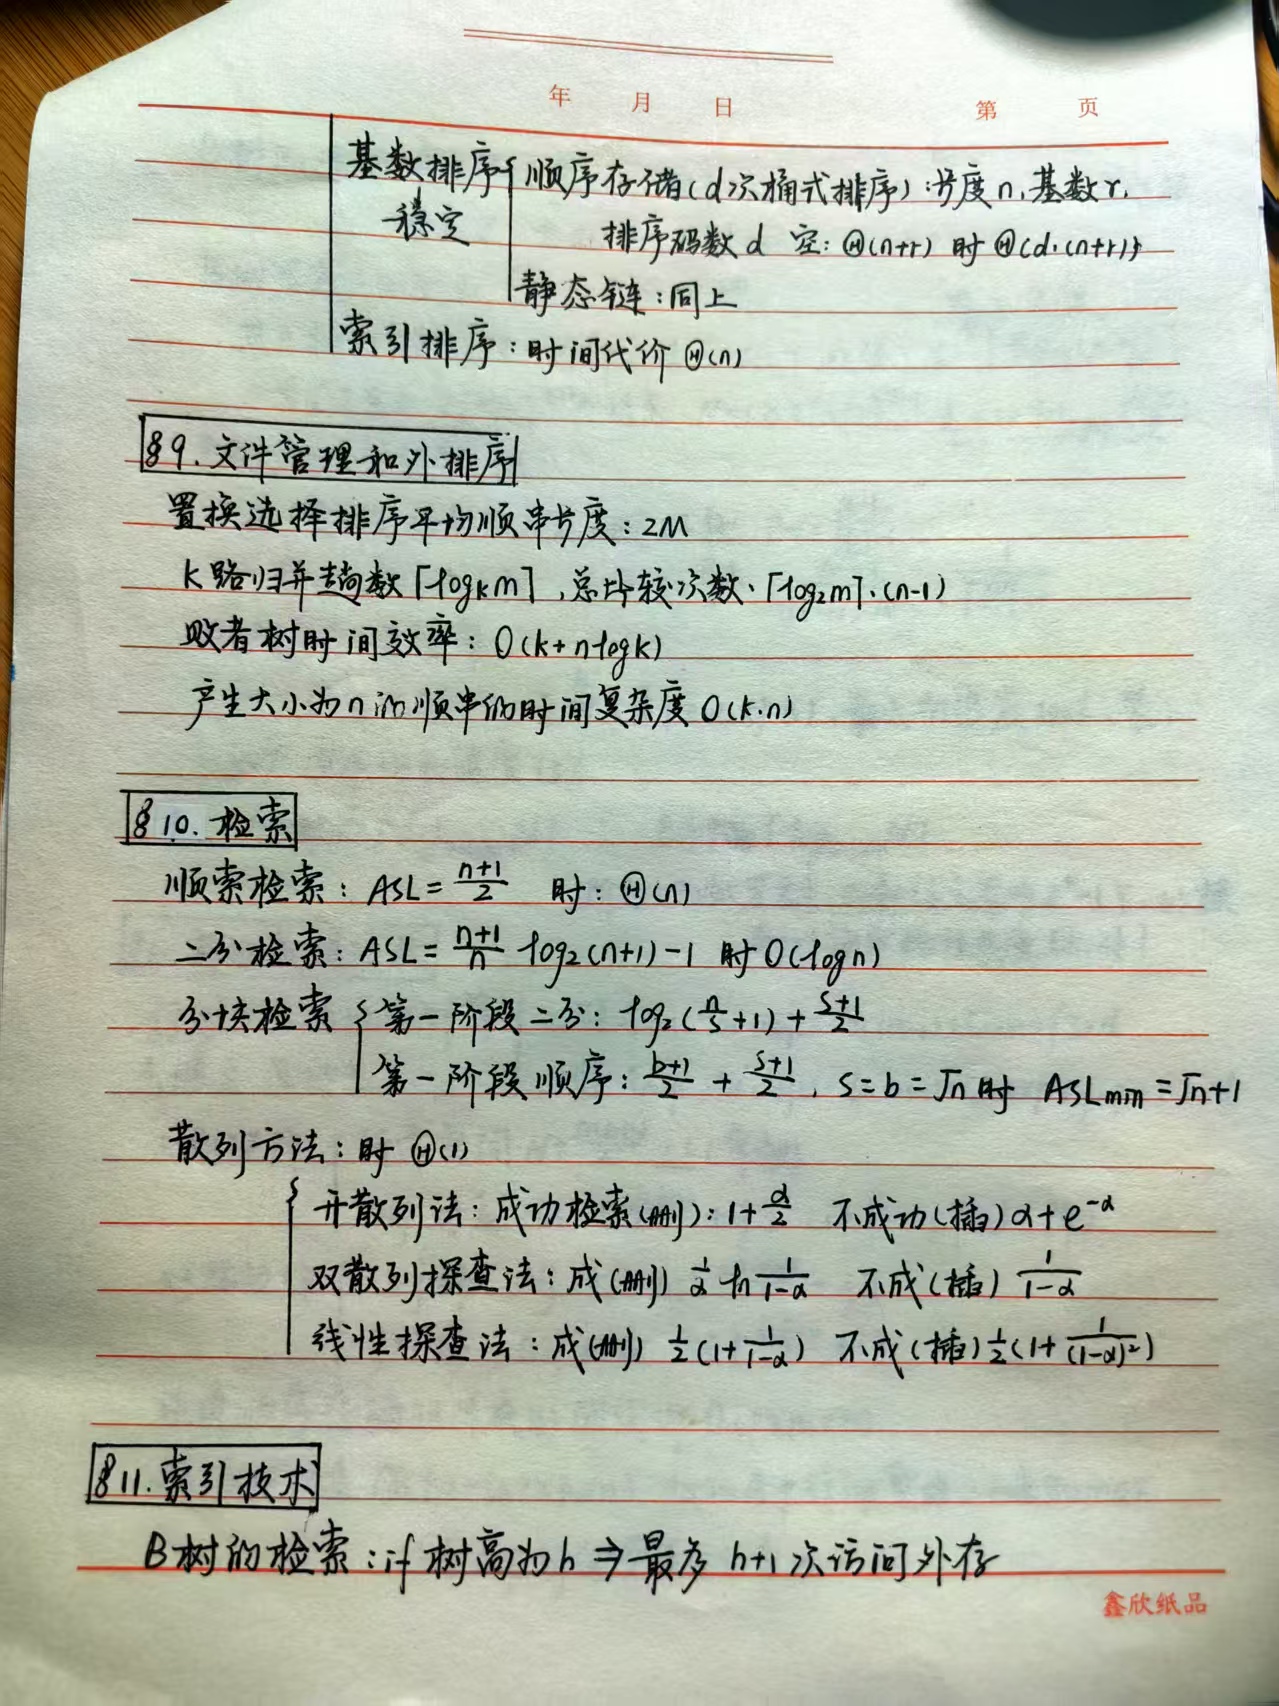 年 月 日 第 页
基数排序 { 顺序存储(d次桶式排序):长度n,基数r,
稳定 排序码数d 空:Θ(n+r) 时Θ(d·(n+r))
静态链:同上
索引排序:时间代价Θ(n)
§9.文件管理和外排序
置换选择排序平均顺串长度:2M
K路归并趟数⌈logₖm⌉,总比较次数·⌈log₂m⌉·(n-1)
败者树时间效率:O(k+nlogk)
产生大小为n的顺串的时间复杂度O(k·n)
§10.检索
顺索检索:ASL=(n+1)/2 时:Θ(n)
二分检索:ASL=(n+1)/n log₂(n+1)-1 时O(logn)
分块检索 { 第一阶段二分:log₂(n/s+1)+(s+1)/2
第一阶段顺序:(b+1)/2+(s+1)/2,s=b=√n时 ASLmin=√n+1
散列方法:时Θ(1)
{ 开散列法:成功检索(删):1+α/2 不成功(插)α+e^-α
双散列探查法:成(删) 1/α ln 1/(1-α) 不成(插) 1/(1-α)
线性探查法:成(删) 1/2(1+1/(1-α)) 不成(插)1/2(1+1/(1-α)²)
§11.索引技术
B树的检索:if树高为h⇒最多h+1次访问外存
鑫欣纸品